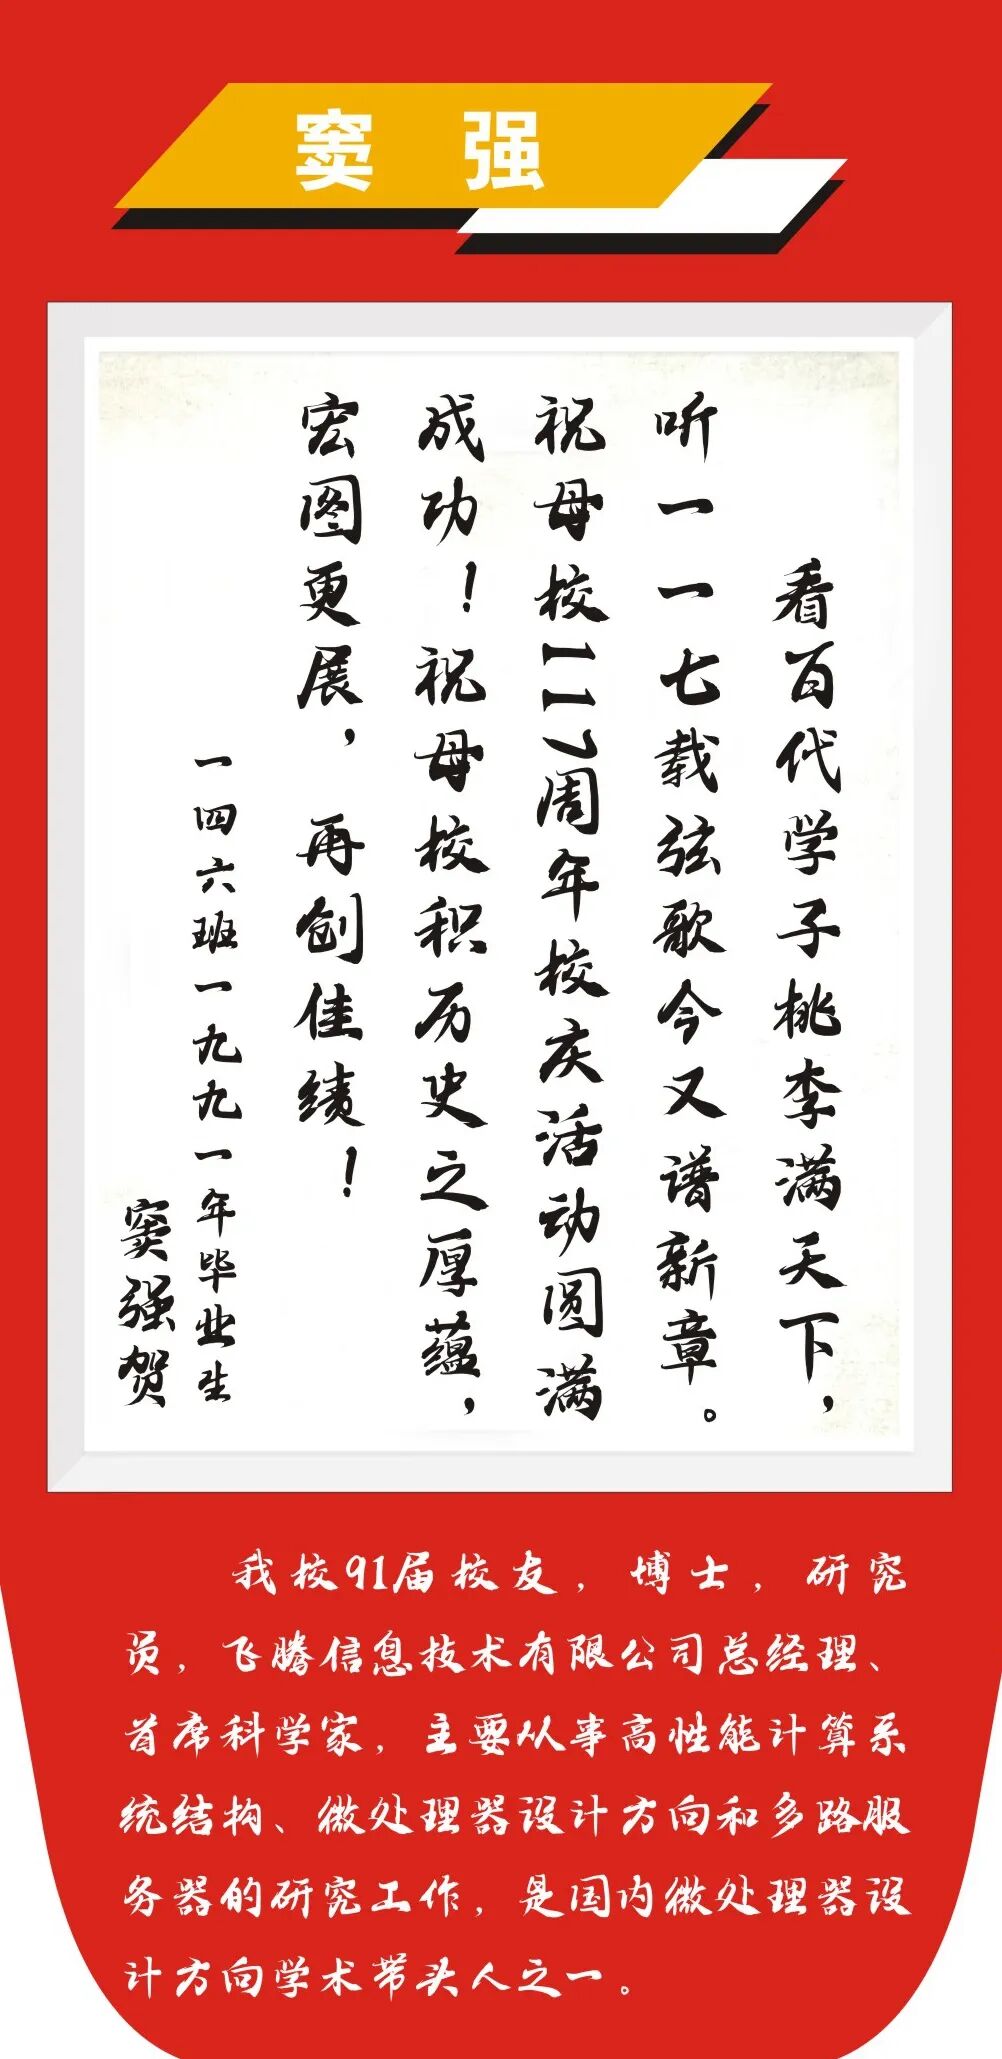 窦 强
看百代学子桃李满天下，
听一一七载弦歌今又谱新章。
祝母校117周年校庆活动圆满
成功！祝母校积历史之厚蕴，
宏图更展，再创佳绩！
一四六班一九九一年毕业生
窦强贺
我校91届校友，博士，研究
员，飞腾信息技术有限公司总经理、
首席科学家，主要从事高性能计算系
统结构、微处理器设计方向和多路服
务器的研究工作，是国内微处理器设
计方向学术带头人之一。